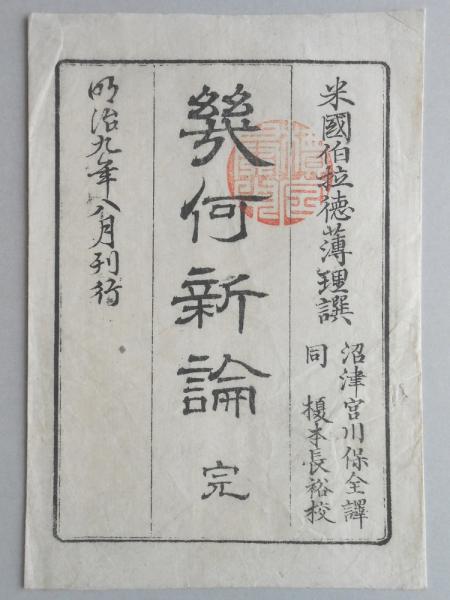 米國伯拉德薄理譔
沼津宮川保全譯
同 榎本長裕校
幾何新論 完
明治九年八月刊行